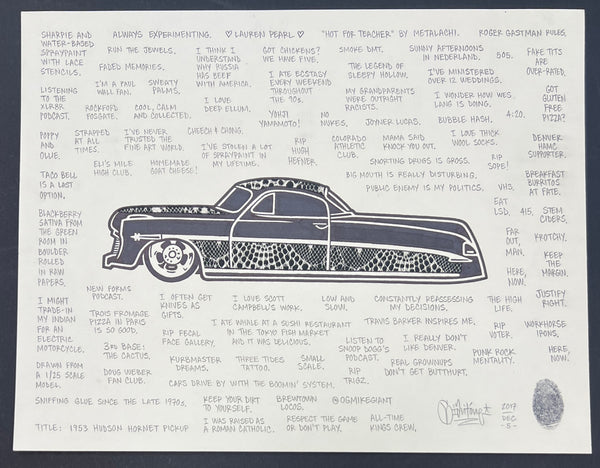 SHARPIE AND WATER-BASED SPRAYPAINT WITH LACE STENCILS.
ALWAYS EXPERIMENTING.
♡LAUREN PEARL♡
"HOT FOR TEACHER" BY METALACHI.
ROGER GASTMAN RULES.
RUN THE JEWELS.
I THINK I UNDERSTAND WHY RUSSIA HAS BEEF WITH AMERICA.
GOT CHICKENS? WE HAVE FIVE.
SMOKE DMT.
SUNNY AFTERNOONS IN NEDERLAND.
505.
FAKE TITS ARE OVER-RATED.
FADED MEMORIES.
THE LEGEND OF SLEEPY HOLLOW.
I'VE MINISTERED OVER 12 WEDDINGS.
LISTENING TO THE XLR8R PODCAST.
I'M A PAUL WALL FAN.
SWEATY PALMS.
I ATE ECSTASY EVERY WEEKEND THROUGHOUT THE 90s.
MY GRANDPARENTS WERE OUTRIGHT RACISTS.
I WONDER HOW WES LANG IS DOING.
GOT GLUTEN FREE PIZZA?
ROCKFORD FOSGATE.
COOL, CALM AND COLLECTED.
I LOVE DEEP ELLUM.
YOHJI YAMAMOTO!
NO NUKES.
JOINER LUCAS.
BUBBLE HASH.
4:20.
POPPY AND OLLIE.
STRAPPED AT ALL TIMES.
I'VE NEVER TRUSTED THE FINE ART WORLD.
CHEECH & CHONG.
I'VE STOLEN A LOT OF SPRAYPAINT IN MY LIFETIME.
RIP HIGH HEFNER.
COLORADO ATHLETIC CLUB.
MAMA SAID KNOCK YOU OUT.
I LOVE THICK WOOL SOCKS.
DENVER HAMC SUPPORTER.
ELI'S MILE HIGH CLUB.
HOMEMADE GOAT CHEESE!
SNORTING DRUGS IS GROSS.
RIP SOPE!
TACO BELL IS A LAST OPTION.
BIG MOUTH IS REALLY DISTURBING.
BREAKFAST BURRITOS AT FATE.
PUBLIC ENEMY IS MY POLITICS.
VHS.
EAT LSD.
415.
STEM CIDERS.
BLACKBERRY SATIVA FROM THE GREEN ROOM IN BOULDER ROLLED IN RAW PAPERS.
FAR OUT, MAN.
KROTCHY.
KEEP THE MARGIN.
HERE, NOW.
NEW FORMS PODCAST.
I OFTEN GET KNIVES AS GIFTS.
I LOVE SCOTT CAMPBELL'S WORK.
LOW AND SLOW.
CONSTANTLY REASSESSING MY DECISIONS.
THE HIGH LIFE.
JUSTIFY RIGHT.
I MIGHT TRADE-IN MY INDIAN FOR AN ELECTRIC MOTORCYCLE.
TROIS FROMAGE PIZZA IN PARIS IS SO GOOD.
RIP FECAL FACE GALLERY.
I ATE WHALE AT A SUSHI RESTAURANT IN THE TOKYO FISH MARKET AND IT WAS DELICIOUS.
TRAVIS BARKER INSPIRES ME.
RIP VOTER.
WORKHORSE IRONS.
3RD BASE: THE CACTUS.
LISTEN TO SNOOP DOGG'S PODCAST.
I REALLY DON'T LIKE DENVER.
PUNK ROCK MENTALITY.
HERE, NOW.
DRAWN FROM A 1/25 SCALE MODEL.
DOUG WEBER FAN CLUB.
KURBMASTER DREAMS.
THREE TIDES TATTOO.
SMALL SCALE.
RIP TRIGZ.
REAL GROWNUPS DON'T GET BUTTHURT.
CARS DRIVE BY WITH THE BOOMIN' SYSTEM.
SNIFFING GLUE SINCE THE LATE 1970s.
KEEP YOUR DIRT TO YOURSELF.
BREWTOWN LOCOS.
@OGMIKEGIANT
2017
DEC
-5-
TITLE: 1953 HUDSON HORNET PICKUP
I WAS RAISED A ROMAN CATHOLIC.
RESPECT THE GAME OR DON'T PLAY.
ALL-TIME KINGS CREW.